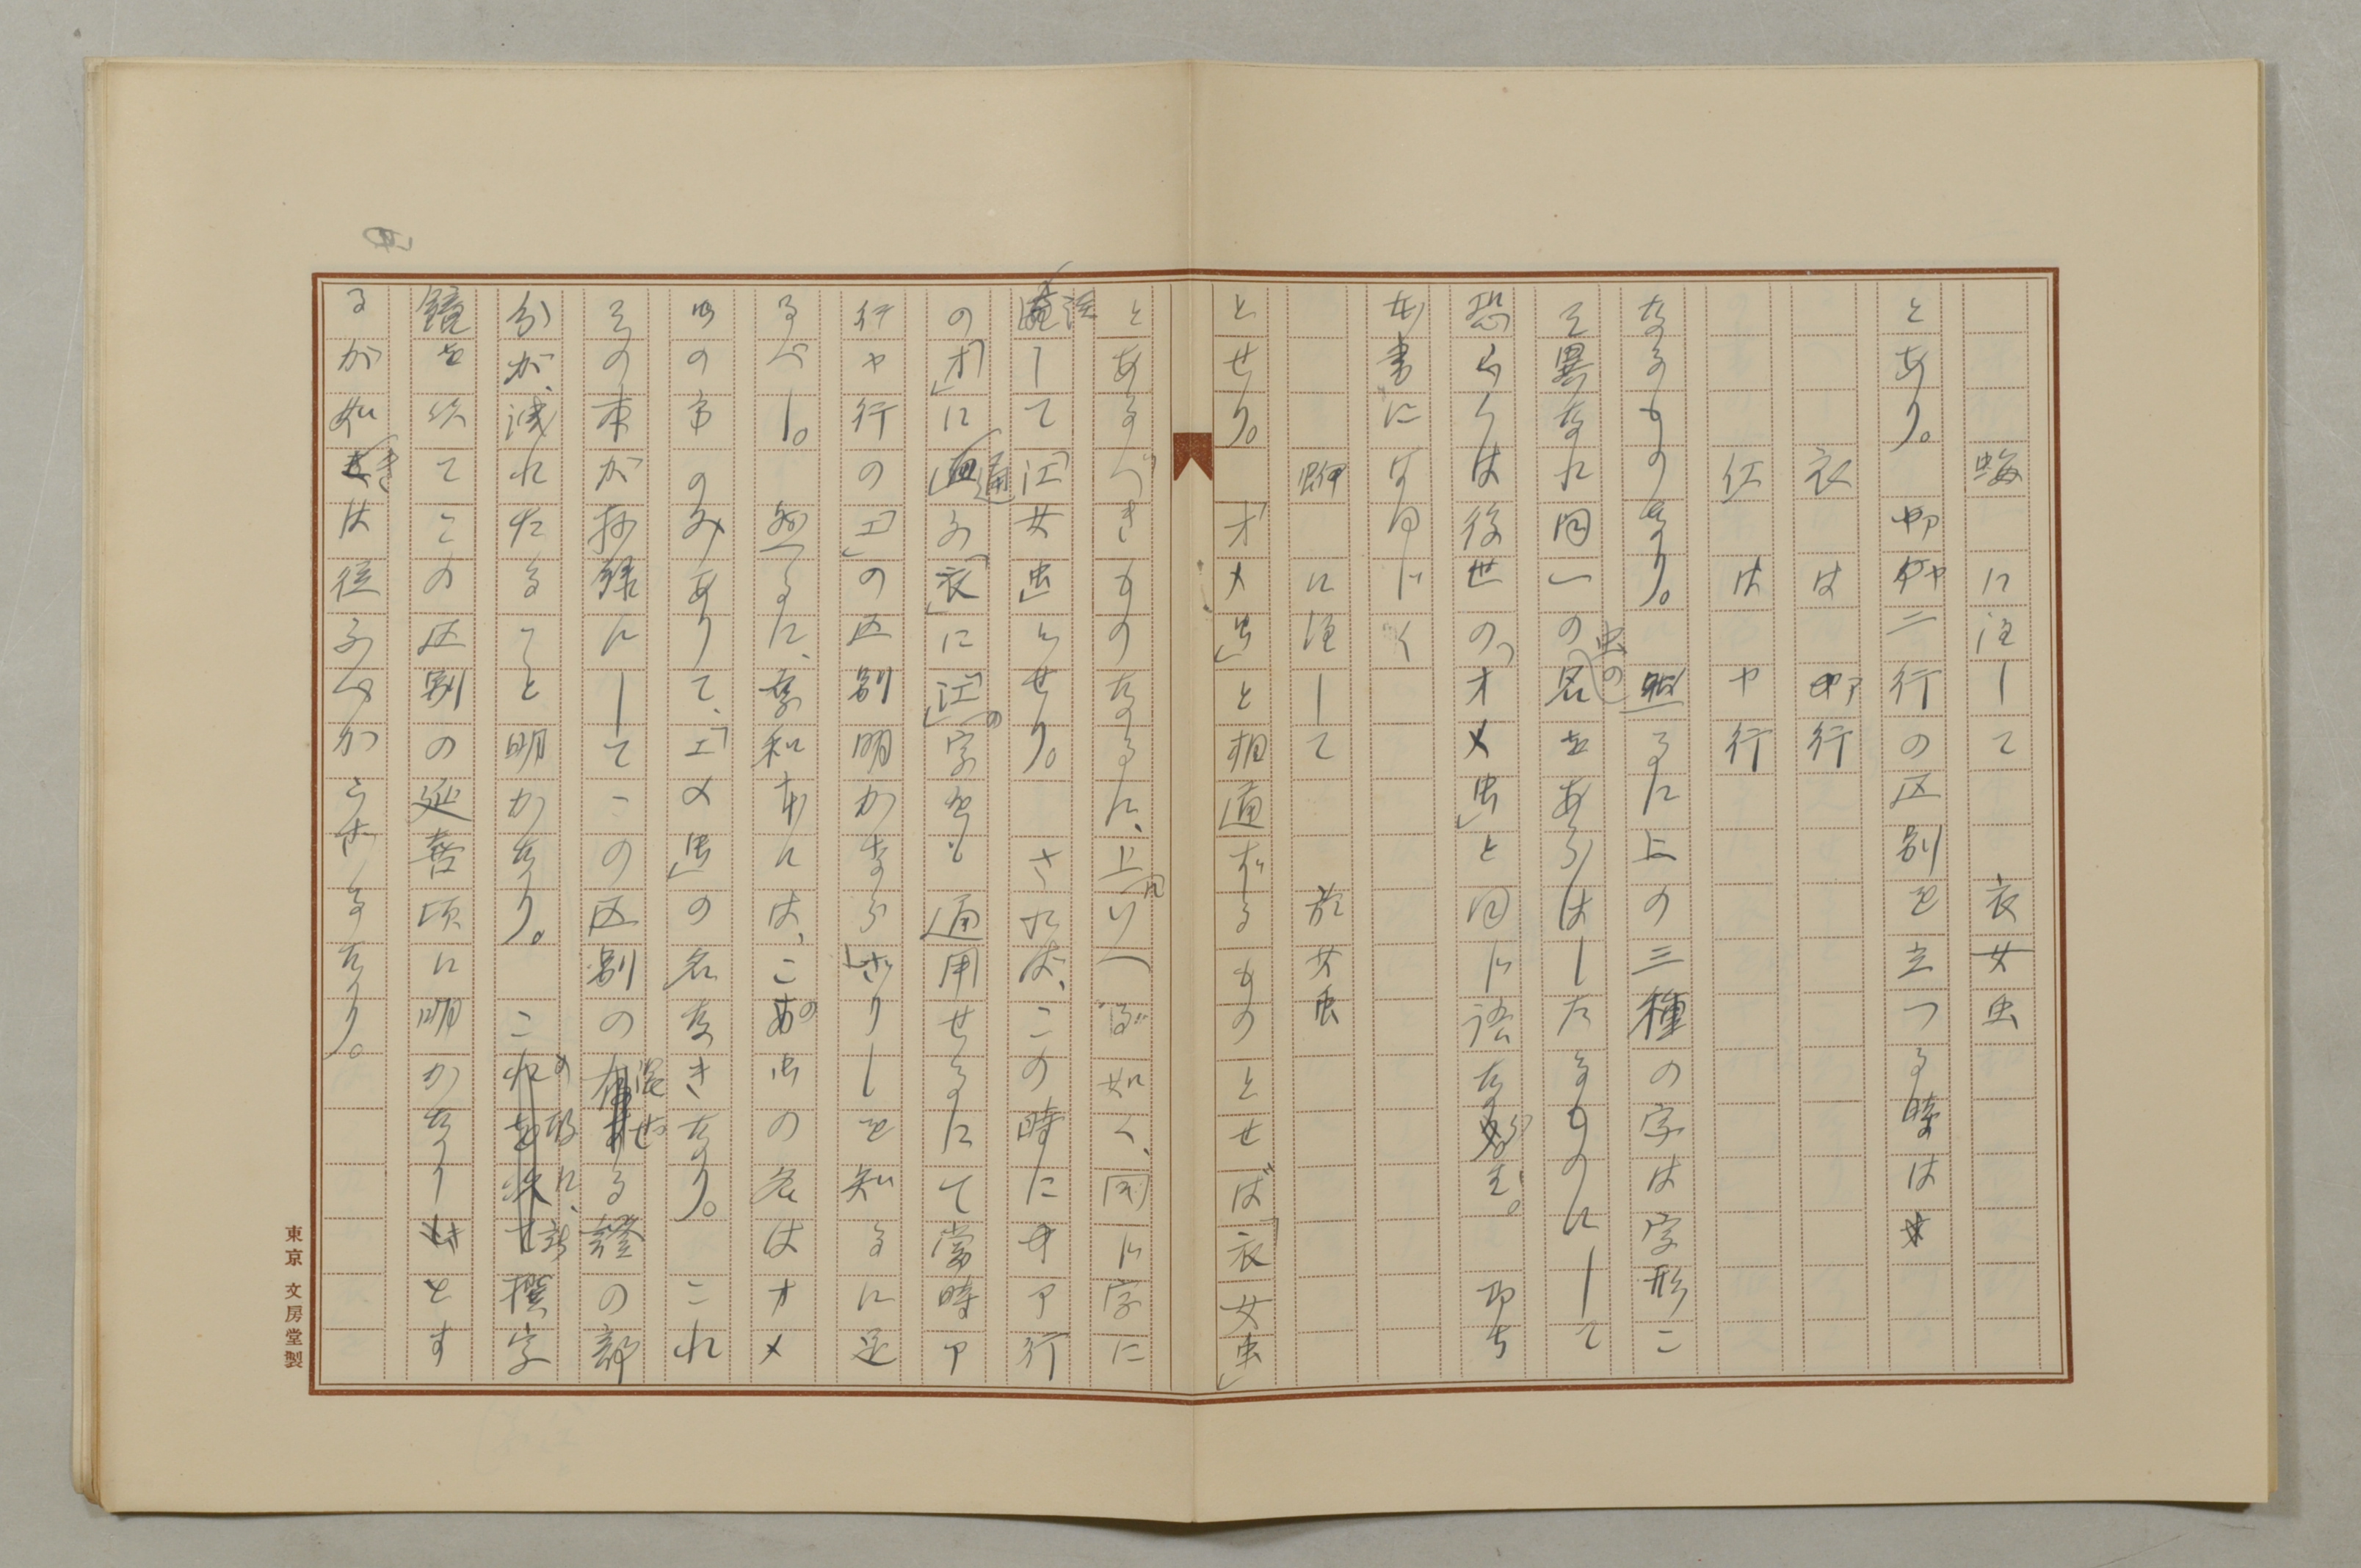 蟱に注して　衣女虫
とあり。アヤ二行の区別を立つる時は
衣は　ア行
江は　ヤ行
なるものなり。然るに上の三種の字は字形こ
そ異なれ同一の虫の名をあらはしたるものにして
恐らくは後世の「オメ虫」と同じ語ならむ。即ち
本書に同じく
に注して　於女虫
とせり。「オメ虫」と相通ずるものとせば「衣女虫」
とあるべきものなるに、上の如く、同じ字に
注して「江女虫」とせり。されば、この時にア行
の「オ」に通ふ「衣」に「江」の字をも通用せるにて当時ア
行ヤ行の「エ」の区別明かならざりしを知るに足
るべし。然るに、享和本には、この虫の名はオメ
ムのみありて、「エメ虫」の名なきなり。これ
その本が抄録にしてこの区別の混せる證の部
分が、減れたること明かなり。この故に、新撰字
鏡を以てこの区別の延喜頃に明かなりきとす
るが如きは従ふべからざるなり。
東京　文房堂製